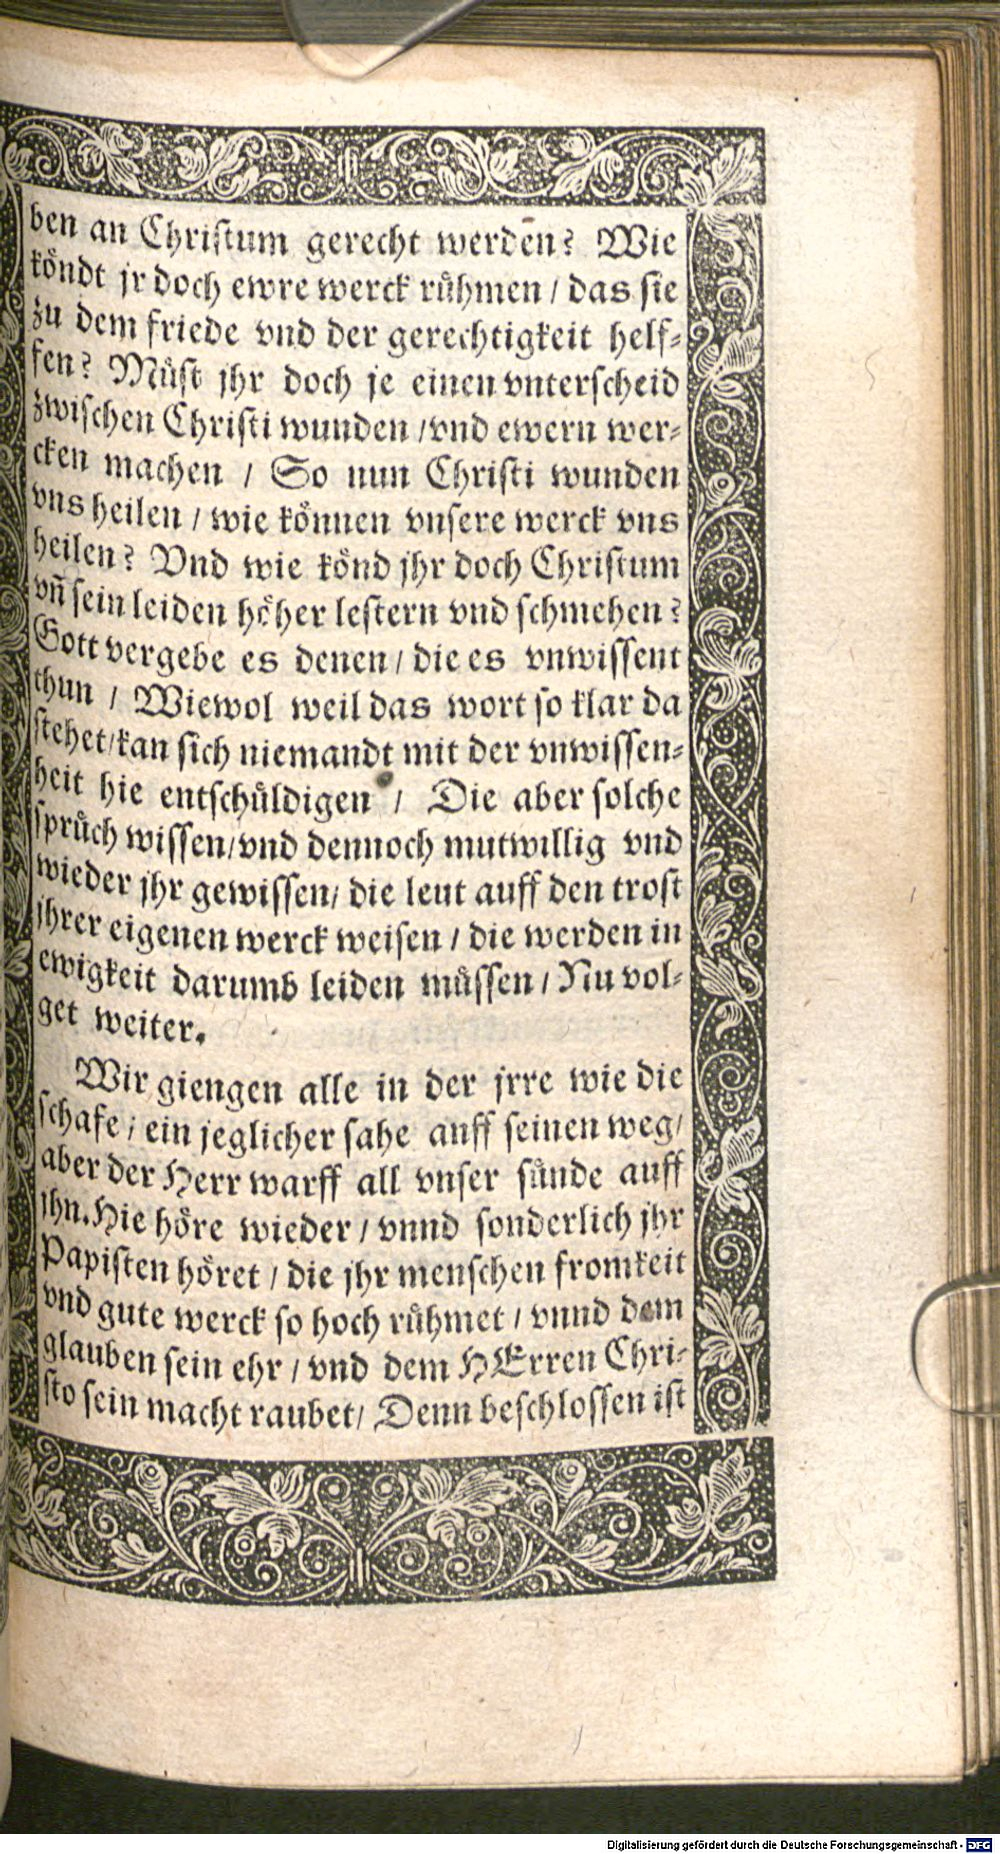 ben an Christum gerecht werden? Wie
köndt jr doch ewre werck rühmen / das sie
zu dem friede vnd der gerechtigkeit helf-
fen? Müst jhr doch je einen vnterscheid
zwischen Christi wunden / vnd ewern wer-
cken machen / So nun Christi wunden
vns heilen / wie können vnsere werck vns
heilen? Vnd wie könd jhr doch Christum
vñ sein leiden höher lestern vnd schmehen?
Gott vergebe es denen / die es vnwissent
thun / Wiewol weil das wort so klar da
stehet / kan sich niemandt mit der vnwissen-
heit hie entschüldigen / Die aber solche
sprüch wissen / vnd dennoch mutwillig vnd
wieder jhr gewissen / die leut auff den trost
jhrer eigenen werck weisen / die werden in
ewigkeit darumb leiden müssen / Nu vol-
get weiter.
Wir giengen alle in der jrre wie die
schafe / ein jeglicher sahe auff seinen weg /
aber der Herr warff all vnser sünde auff
jhn. Hie höre wieder / vnnd sonderlich jhr
Papisten höret / die jhr menschen fromkeit
vnd gute werck so hoch rühmet / vnnd dem
glauben sein ehr / vnd dem HErren Chri-
sto sein macht raubet / Denn beschlossen ist
Digitalisierung gefördert durch die Deutsche Forschungsgemeinschaft - DFG